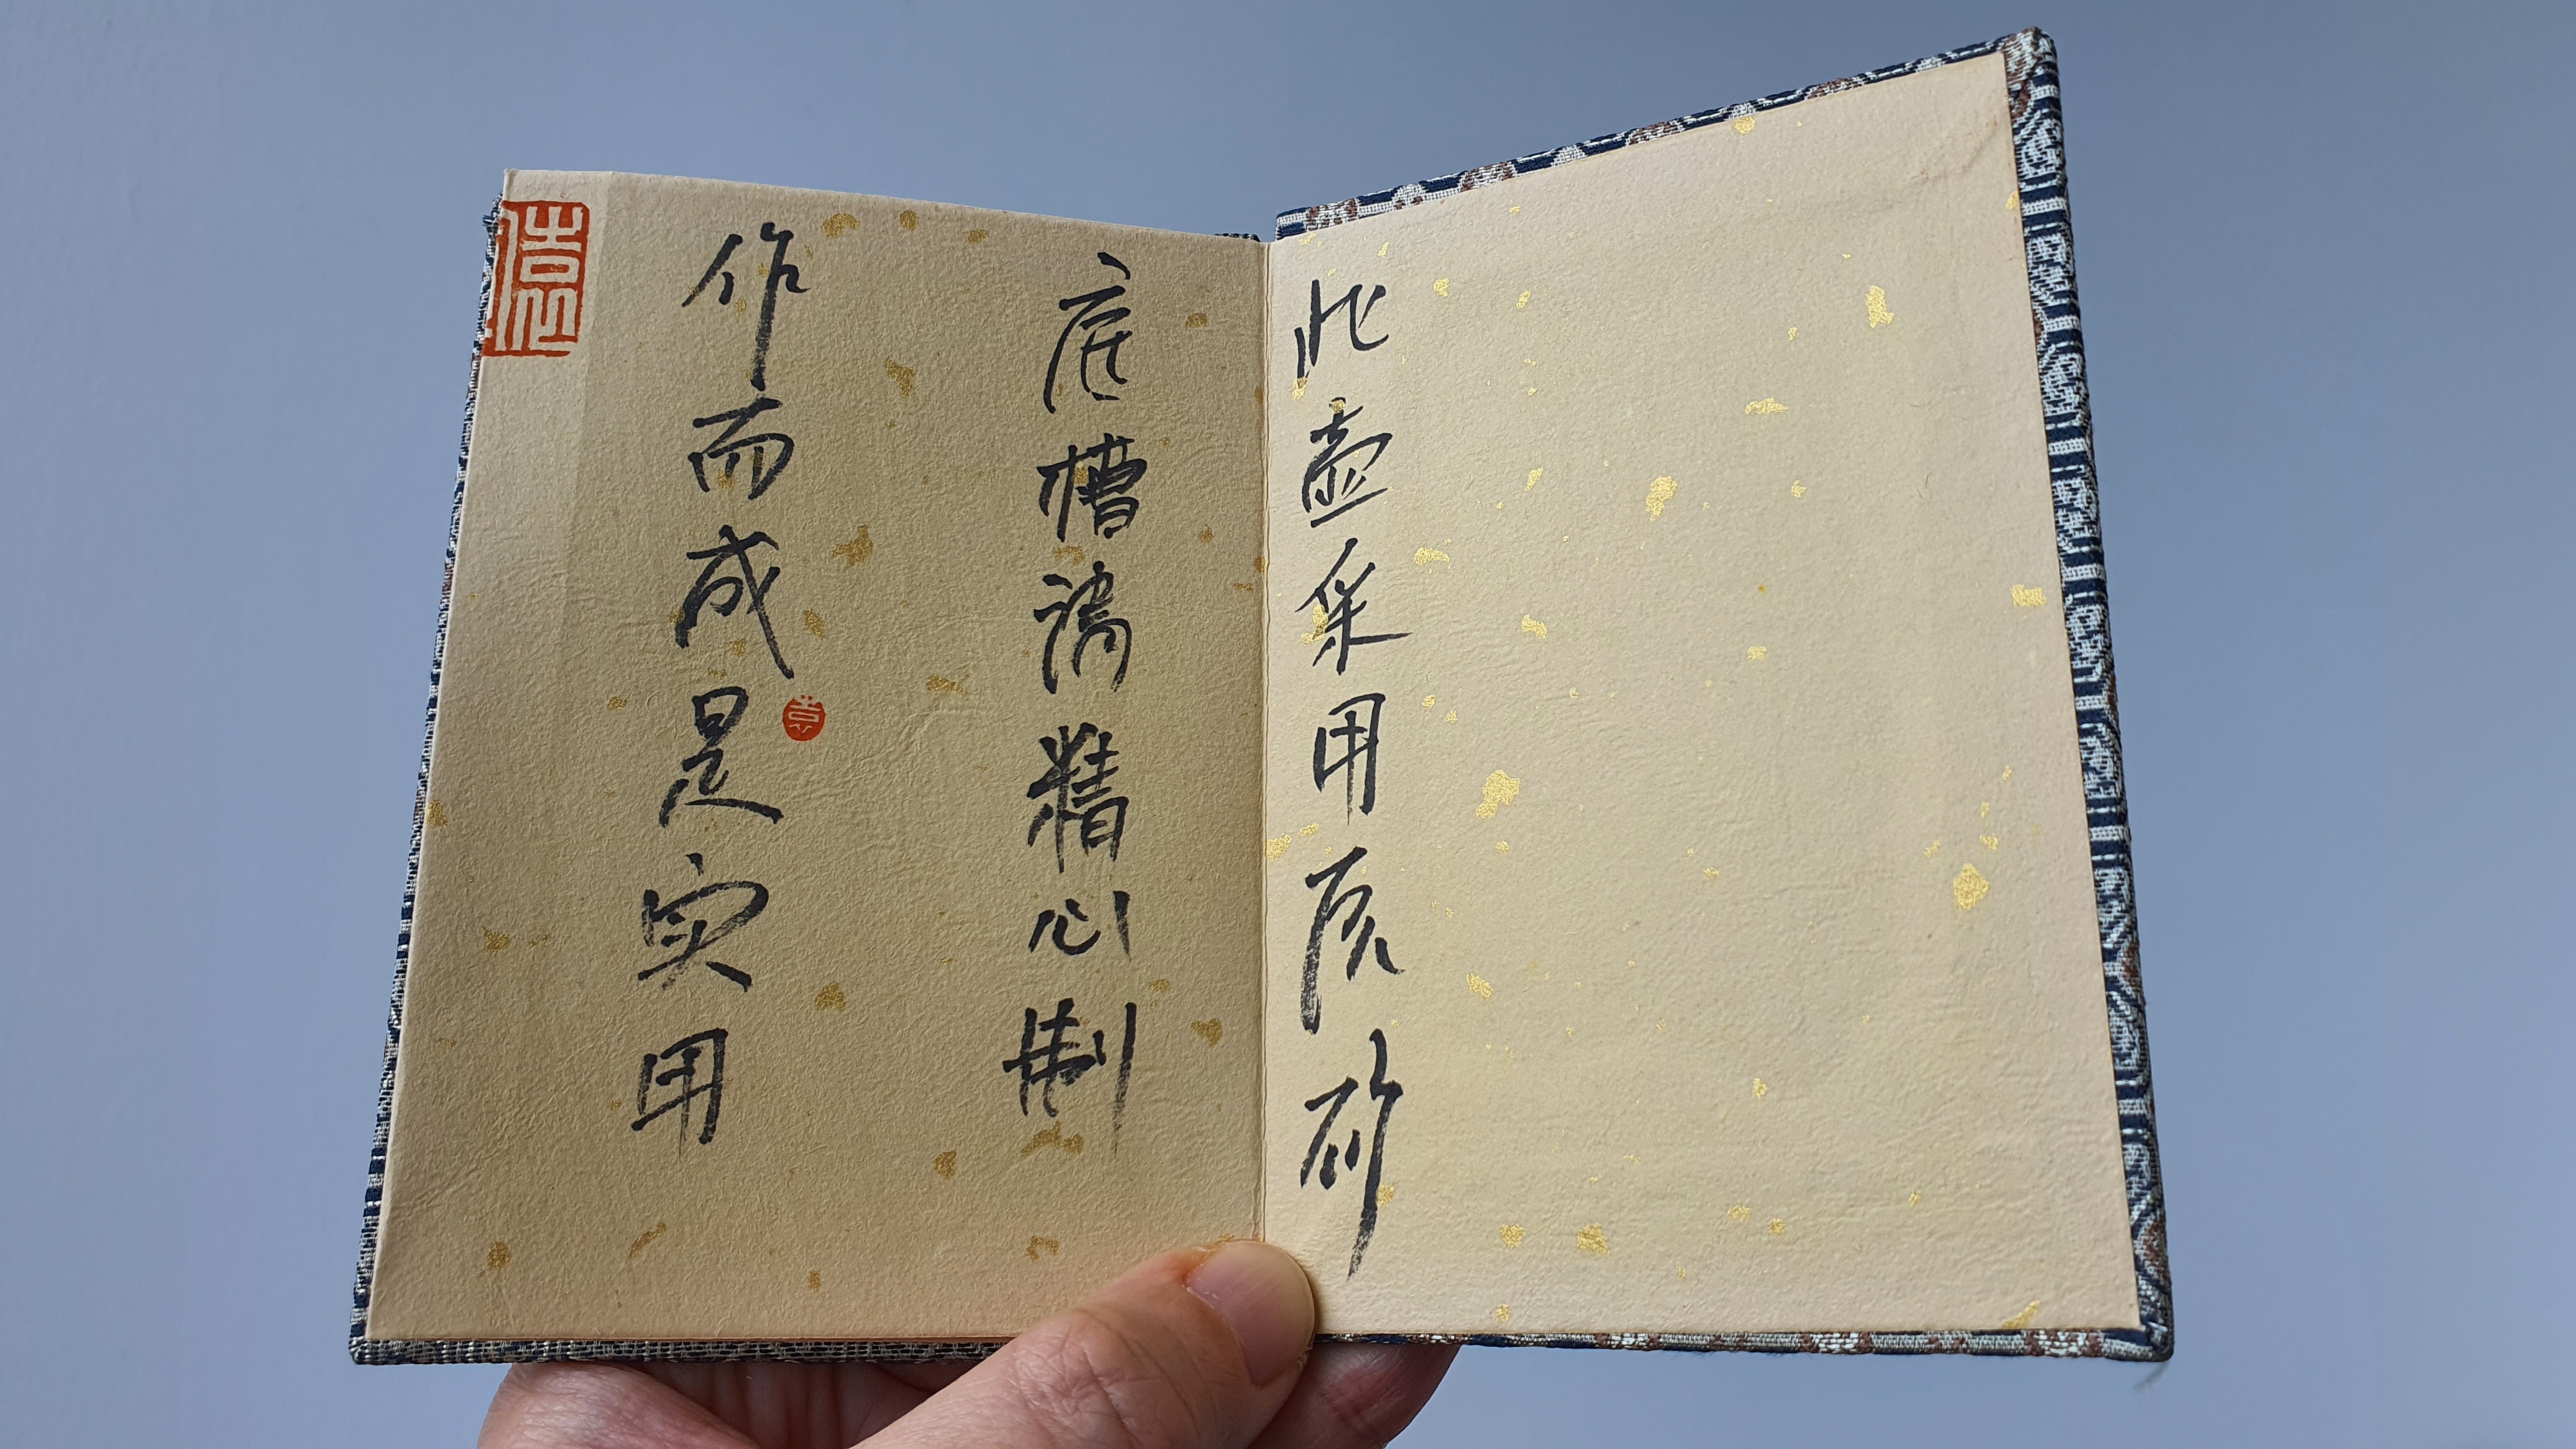 此壶采用原矿
底槽清精心制
作而成是实用
袁